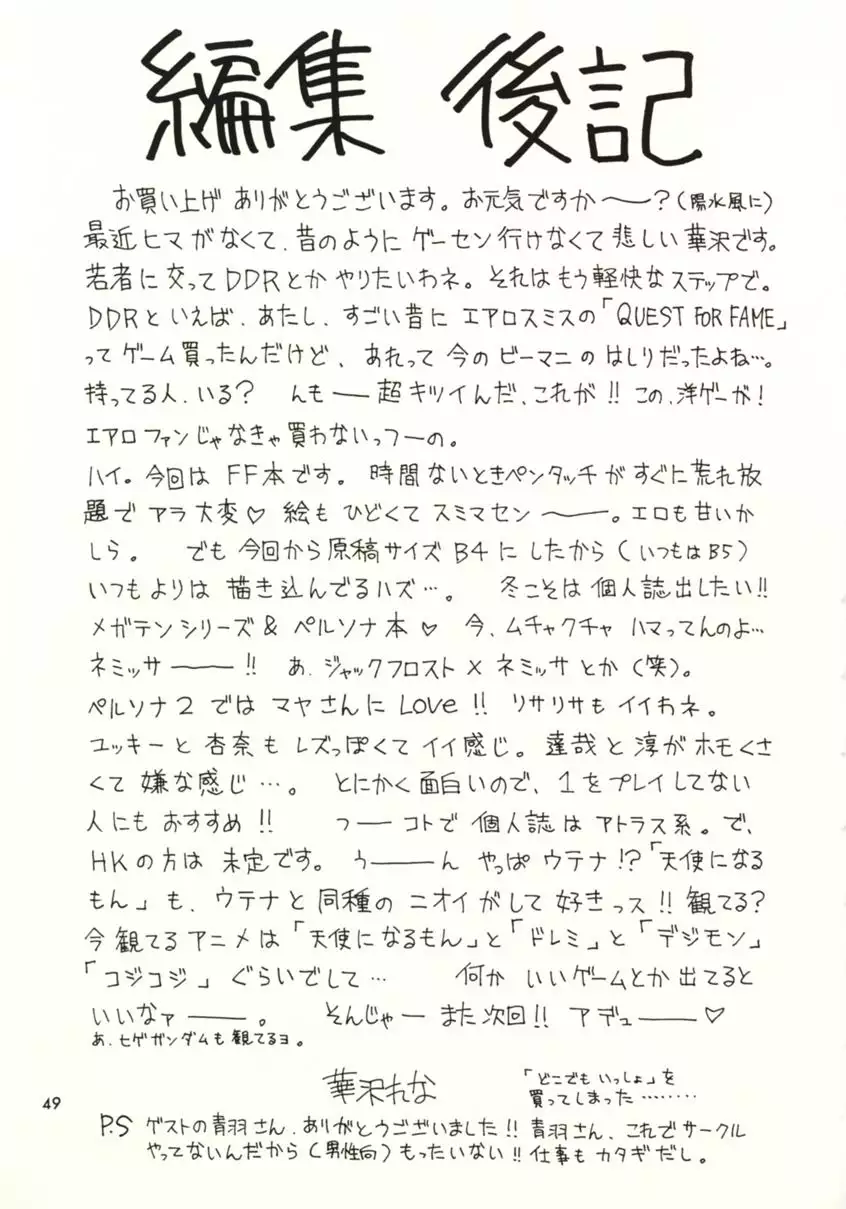 編集 後記
お買い上げ ありがとうございます。お元気ですか〜?(陽水風に)
最近ヒマがなくて、昔のようにゲーセン行けなくて悲しい華沢です。
若者に交ってDDRとかやりたいわネ。それはもう軽快なステップで。
DDRといえば、あたし、すごい昔にエアロスミスの「QUEST FOR FAME」
ってゲーム買ったんだけど、あれって今のビーマニのはしりだったよね…。
持ってる人、いる? んもー超キツイんだ、これが!!この、洋ゲーが!
エアロファンじゃなきゃ買わないっつーの。
ハイ。今回はFF本です。時間ないときペンタッチがすぐに荒れ放
題でアラ大変♡ 絵もひどくてスミマセン〜。エロも甘いか
しら。 でも今回から原稿サイズB4にしたから(いつもはB5)
いつもよりは描き込んでるハズ…。 冬こそは個人誌出したい!!
メガテンシリーズ&ペルソナ本♡ 今、ムチャクチャハマってんのよ…
ネミッサー!! あ、ジャックフロスト×ネミッサとか(笑)。
ペルソナ2ではマヤさんにLove!! リサリサもイイわネ。
ユッキーと杏奈もレズっぽくてイイ感じ。達哉と淳がホモくさ
くて嫌な感じ…。 とにかく面白いので、1をプレイしてない
人にもおすすめ!! つーコトで個人誌はアトラス系。で、
HKの方は未定です。うーん やっぱウテナ!?「天使になる
もん」も、ウテナと同種のニオイがして好きっス!!観てる?
今観てるアニメは「天使になるもん」と「ドレミ」と「デジモン」
「コジコジ」ぐらいでして… 何かいいゲームとか出てると
いいなァー。 そんじゃーまた次回!! アデューー♡
あ、ヒゲガンダムも観てるヨ。
華沢れな
「どこでもいっしょ」を
買ってしまった………
49
P.S ゲストの青羽さん、ありがとうございました!!青羽さん、これでサークル
やってないんだから(男性向)もったいない!!仕事もカタギだし。